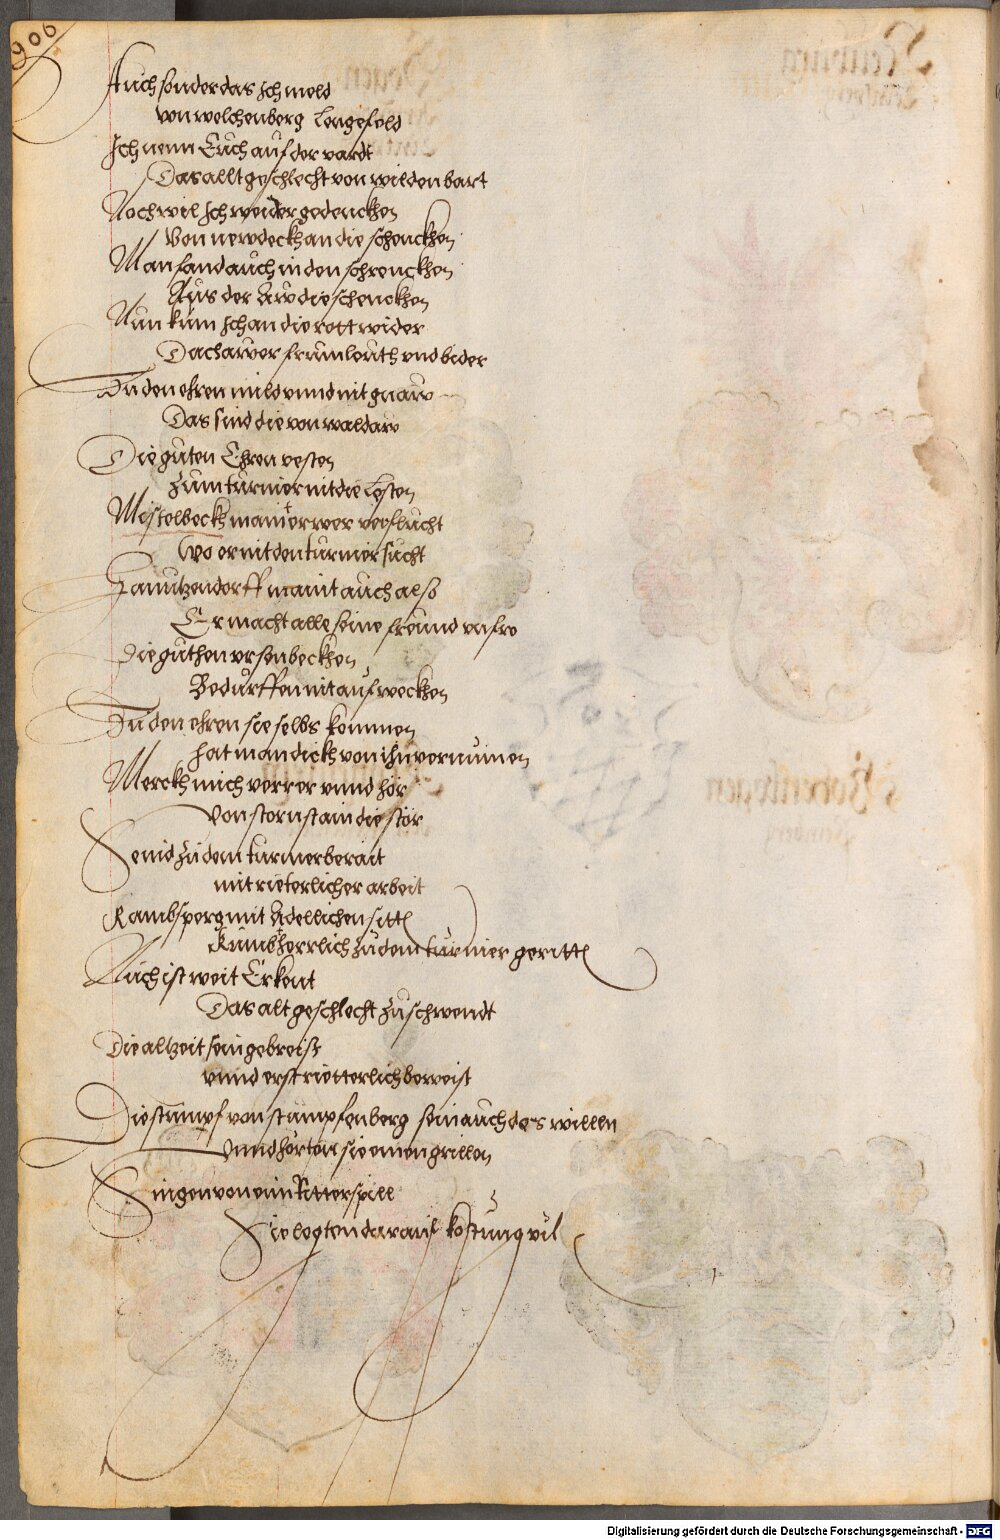 906
Auch sonder das ich meld
von welchenberg lengefeld
Ich nenn Euch auf der vardt
Das allt geschlecht von wildenbart
Noch wil ich weider gedenckhen
Von newdeckh an die schenckhen
Man fand auch in den schrenckhen
Aus der Auw die schenckhen
Nun kum ich an die rott wider
Dachawer frumleuth vnd bider
Zu den ehren mild vnnd nit gnaw
Das sind die von waldaw
Die guten Ehren vesten
Zum turnier nit die lesten
Mistelbeckh maint er wer verflucht
Wo er nit den turnier sucht
Janutzendorff maint auch also
Er macht alle seine freund vnfro
Die guthen vrsenbeckhen
Bedurffen nit aufweckhen
Zu den ehren sie selbs kommen
hat man dickh von ihn vernumen
Merckh mich verrer vnnd hör
Von stornstain die stör
Send zu dem turnier berait
mit rieterlicher arbeit
Rambsperg mit Adellichen sitten
Kumbt herrlich zu dem turnier geritten
Auch ist weit Erkent
Das alt geschlecht zu schwendt
Die altzeit sein gebreist
vnnd erst rietterlich beweist
Die stumpf von stumpfenberg sein auch des willen
Vnnd horten sie einen grillen
Singen von eim Ritterspill
Sie legten darauf kostung vil
Digitalisierung gefördert durch die Deutsche Forschungsgemeinschaft - DFG